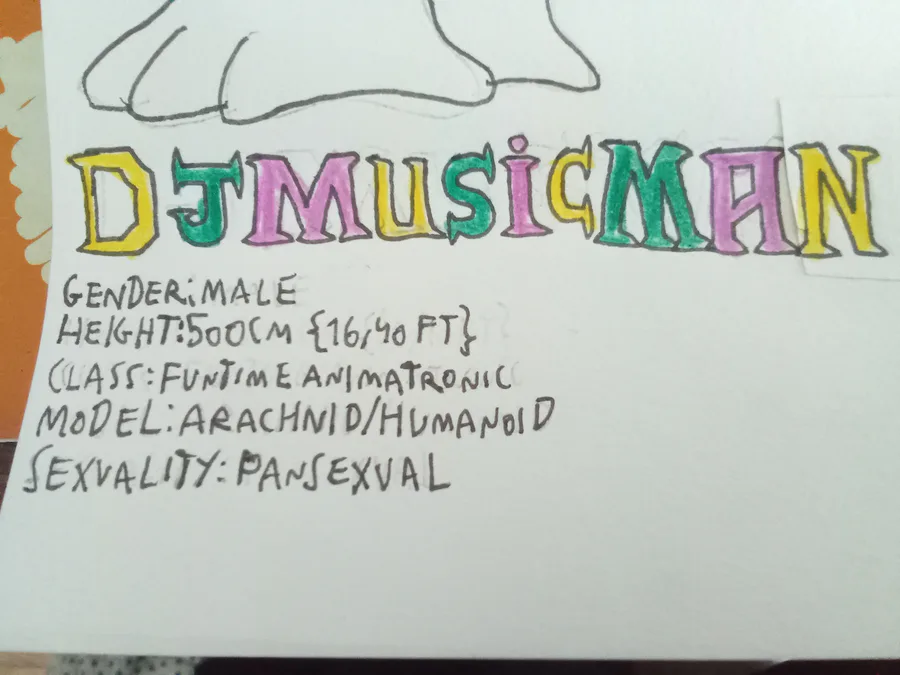 DJMUSiCMAN
GENDER:MALE
HEIGHT:500CM {16,40 FT}
CLASS:FUNTIME ANIMATRONIC
MODEL:ARACHNID/HUMANOID
SEXVALITY:PANSEXVAL